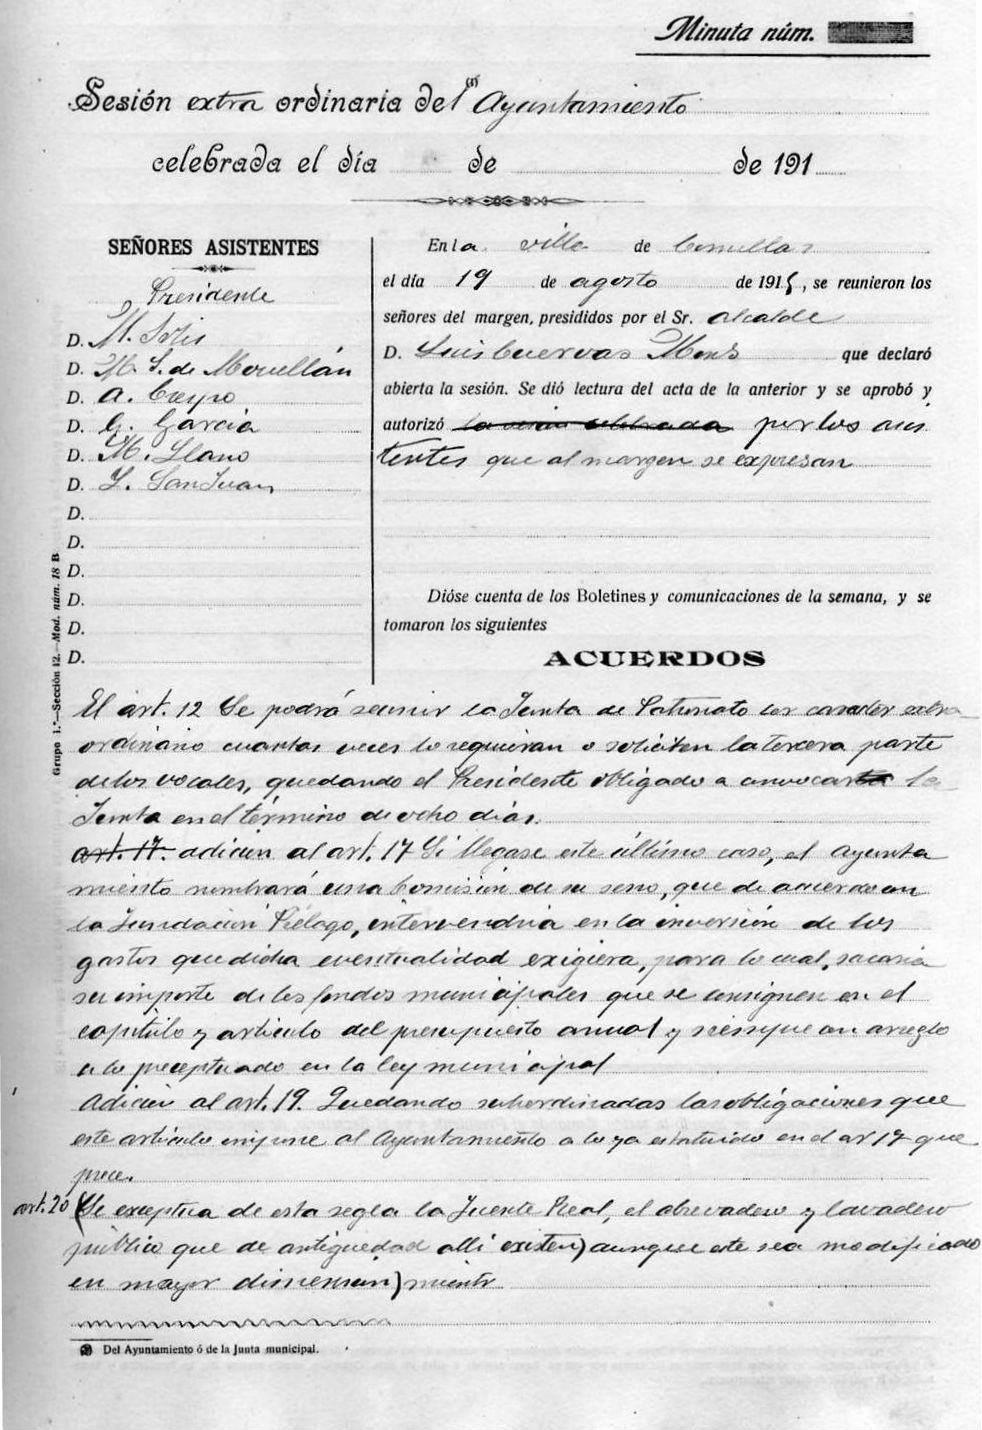 Minuta núm.
Sesión extra ordinaria del (1) Ayuntamiento
celebrada el día de de 191
SEÑORES ASISTENTES
Presidente
D. M. Solis
D. M. S. de Movellán
D. A. Crespo
D. G. García
D. M. Llano
D. J. SanJuan
D.
D.
D.
D.
D.
D.
Grupo 1.º—Sección 12.—Mod. núm. 18 B
En la villa de Comillas
el día 19 de agosto de 1915, se reunieron los
señores del margen, presididos por el Sr. alcalde
D. Luis Cuervas Mons que declaró
abierta la sesión. Se dió lectura del acta de la anterior y se aprobó y
autorizó la celebrada por los asis
tentes que al margen se expresan
Dióse cuenta de los Boletines y comunicaciones de la semana, y se
tomaron los siguientes
ACUERDOS
El art. 12 Se podrá reunir la Junta de Patronato con caracter extra
ordinario cuantas veces lo requieran o soliciten la tercera parte
de los vocales, quedando el Presidente obligado a convocar la
Junta en el término de ocho días.
art. 17. adición al art. 17 Si llegase este último caso, el ayunta
miento nombrará una Comisión de su seno, que de acuerdo con
la Fundación Piélago, intervendria en la inversión de los
gastos que dicha eventualidad exigiera, para lo cual, sacaria
su importe de los fondos municipales que se consignen en el
capitulo y articulo del presupuesto anual y siempre con arreglo
a lo preceptuado en la ley municipal
Adición al art. 19. Quedando subordinadas las obligaciones que
este articulo impone al Ayuntamiento a lo ya estatuido en el ar 17 que
prece.
art. 20 (Se exceptua de esta regla la Fuente Real, el abrevadero y lavadero
público que de antiguedad allí existen) aunque este sea modificado
en mayor dimensión)
(1) Del Ayuntamiento ó de la Junta municipal.